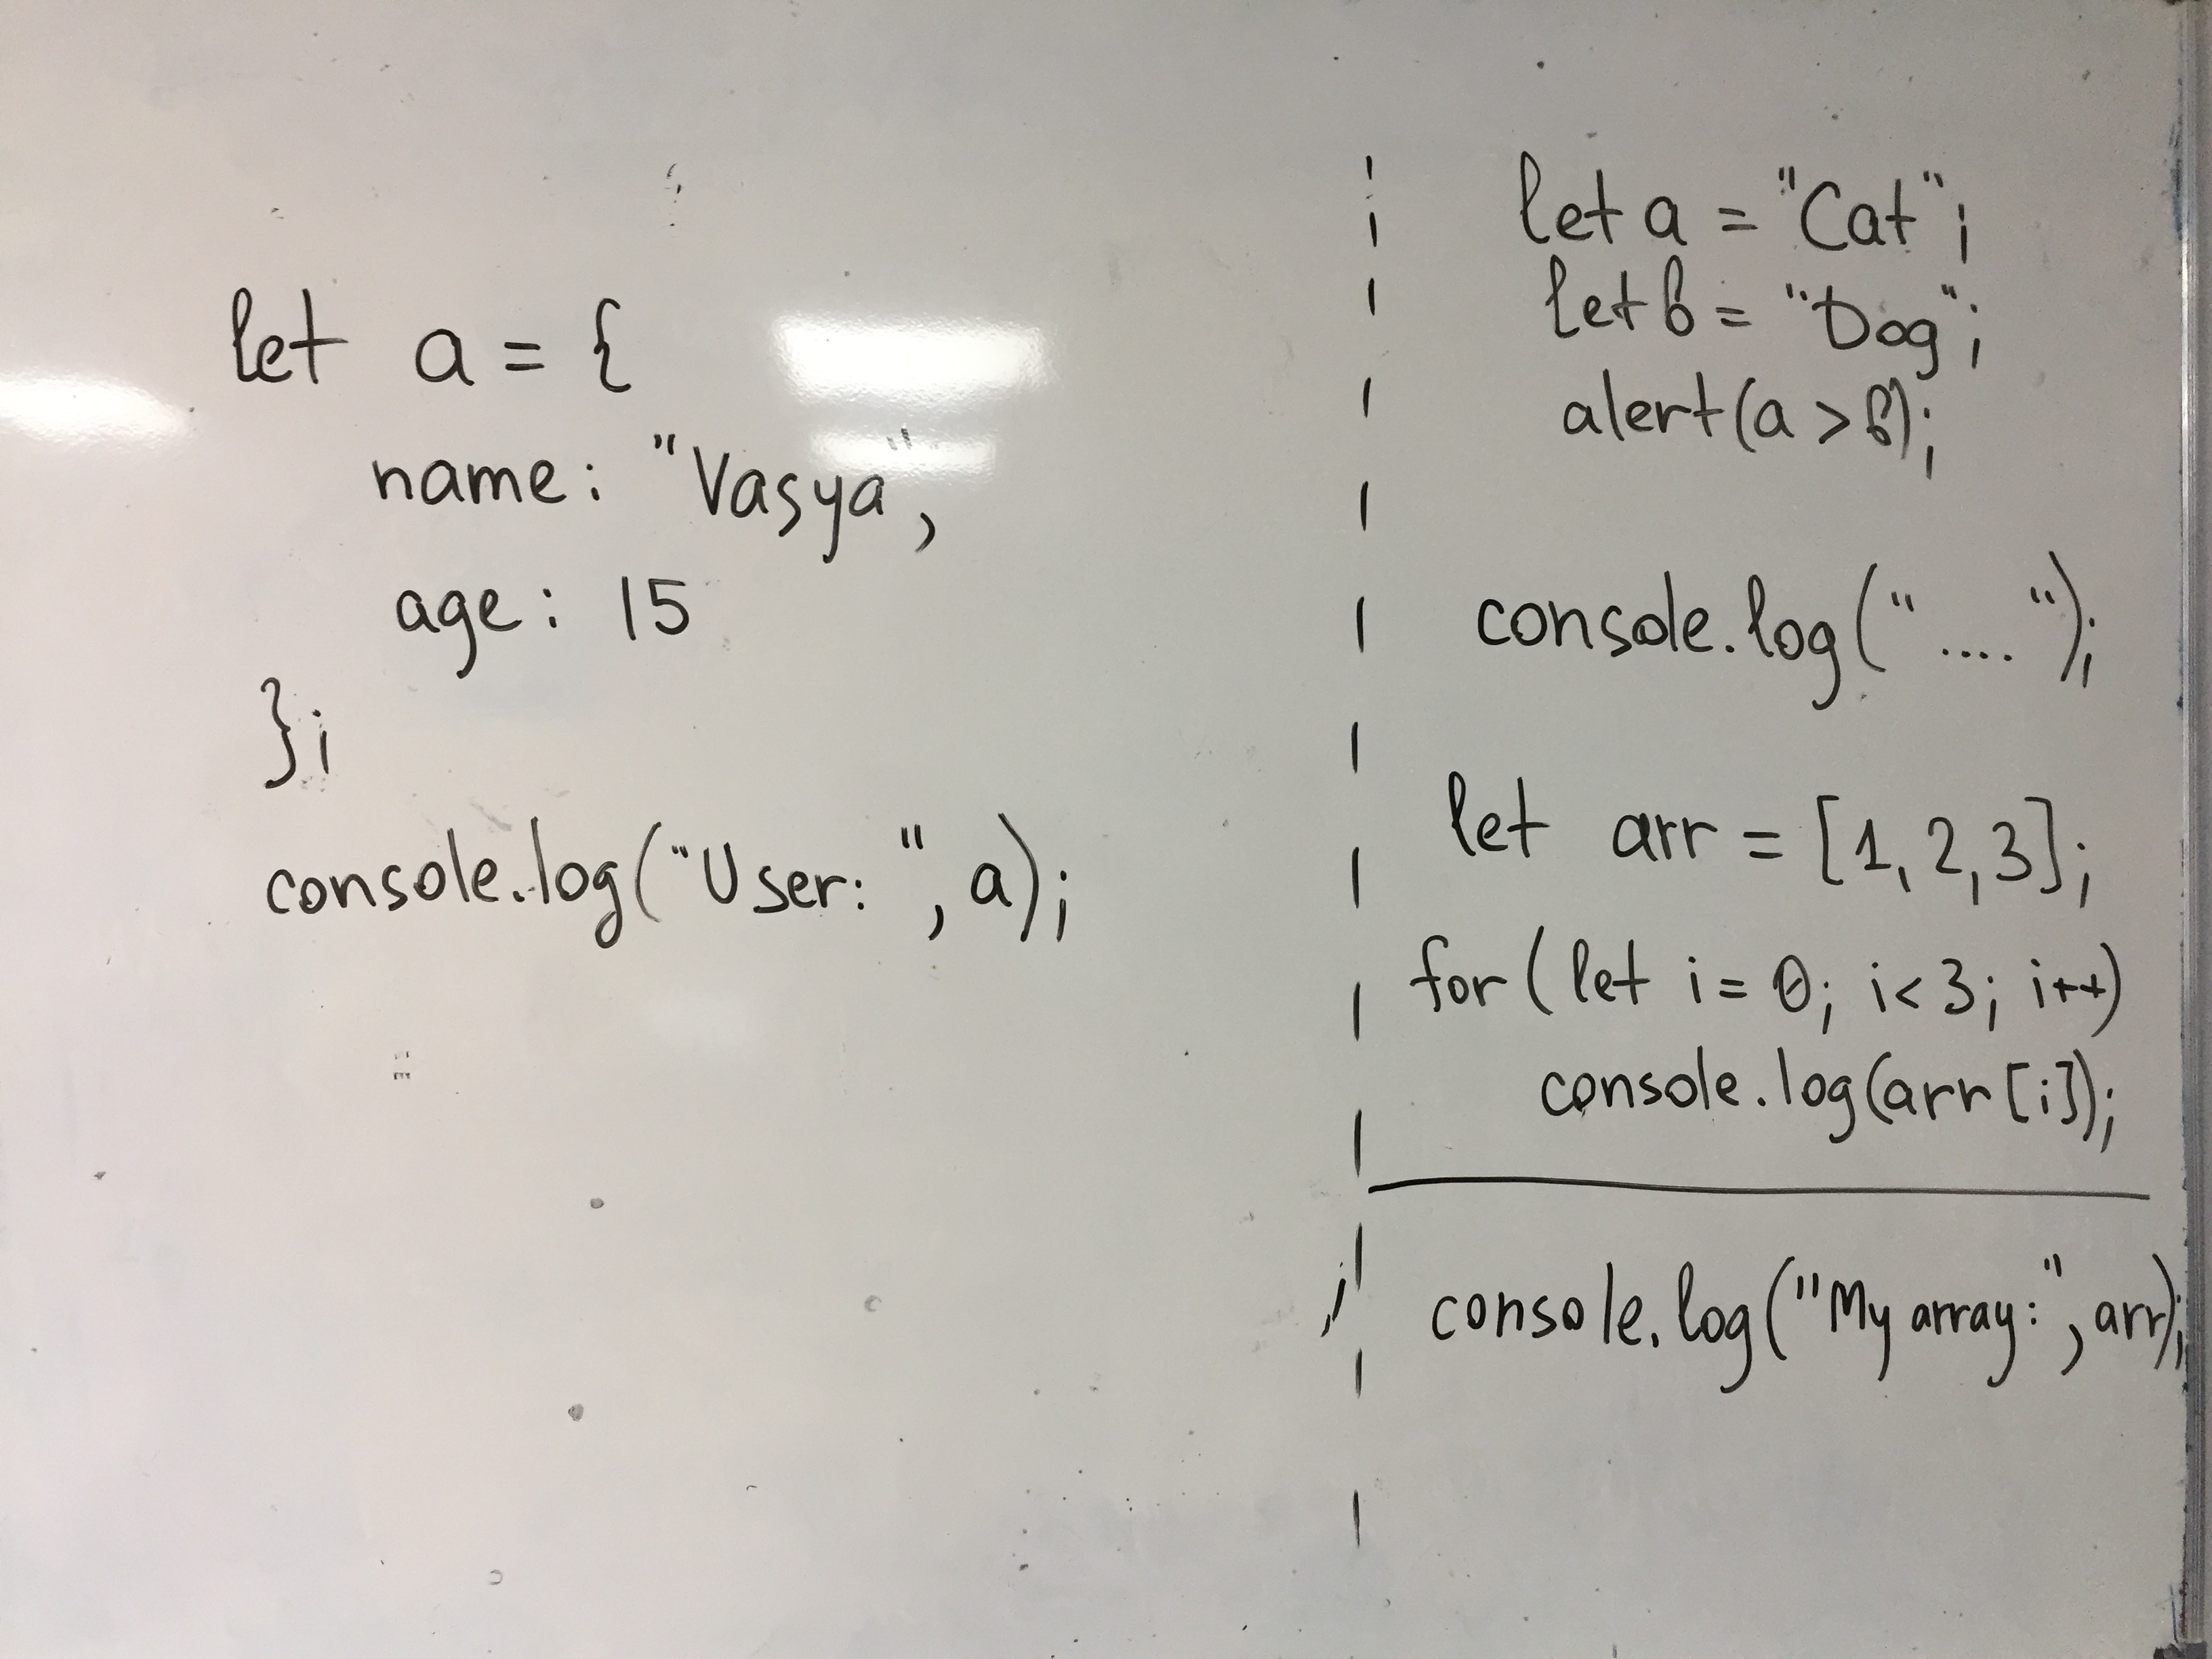 let a = {
name: "Vasya",
age: 15
};
console.log("User: ", a);
let a = "Cat";
let b = "Dog";
alert(a > b);
console.log("....");
let arr = [1, 2, 3];
for (let i = 0; i < 3; i++)
console.log(arr[i]);
console.log("My array:", arr);